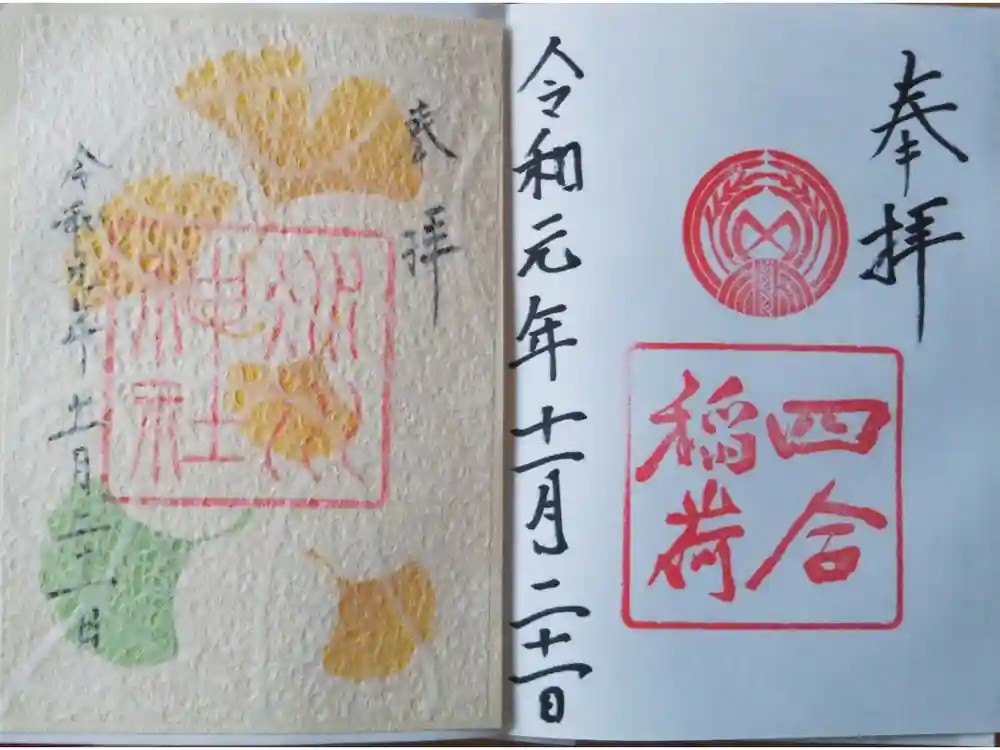 奉拝
四合
稲荷
令和元年十一月二十一日
奉拝
神社
令和元年十一月二十一日